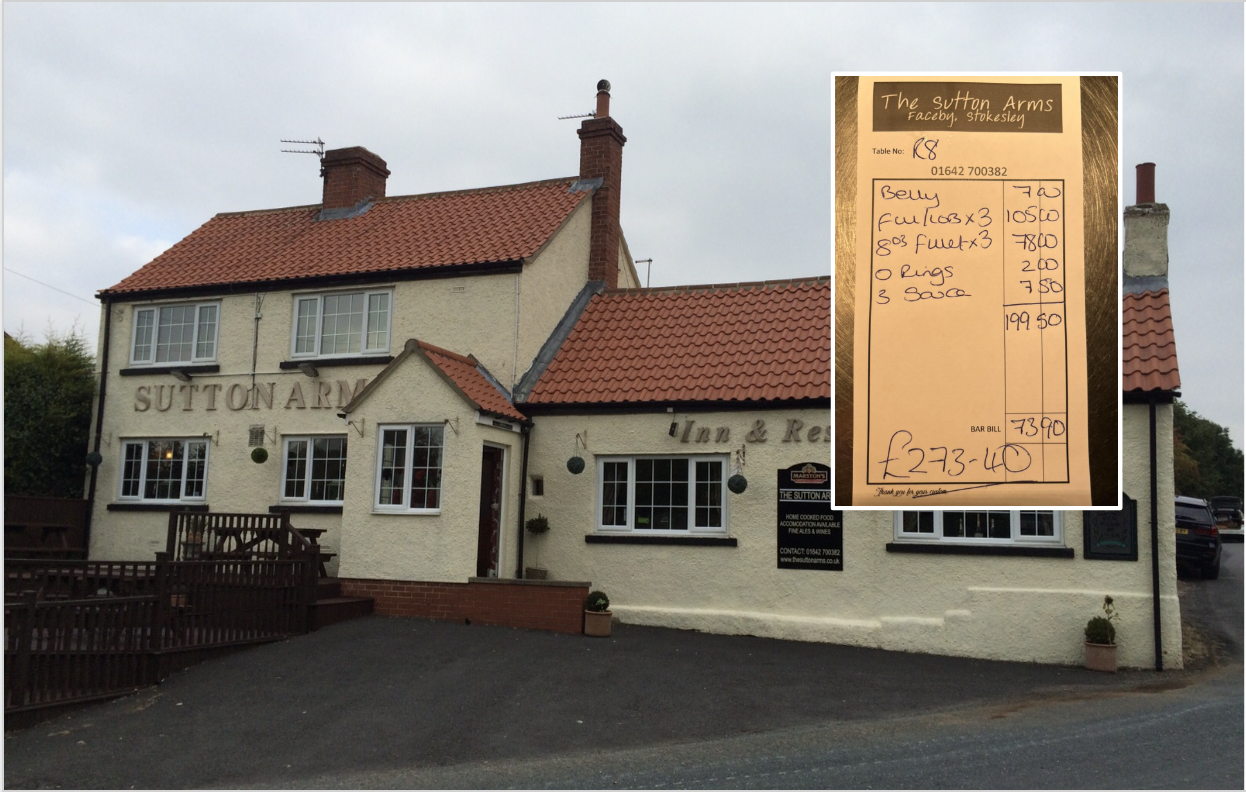 SUTTON ARM
Inn & Res
MARSTON'S
THE SUTTON AR
HOME COOKED FOOD
ACCOMODATION AVAILABLE
FINE ALES & WINES
CONTACT: 01642 700382
www.thesuttonarms.co.uk
The Sutton Arms
Faceby, Stokesley
Table No: R8
01642 700382
Belly 7 00
Fill/LOB x 3 105 00
8oz Fillet x 3 78 00
O Rings 2 00
3 Sauce 7 50
199 50
BAR BILL 73 90
£273-40
Thank you for your custom